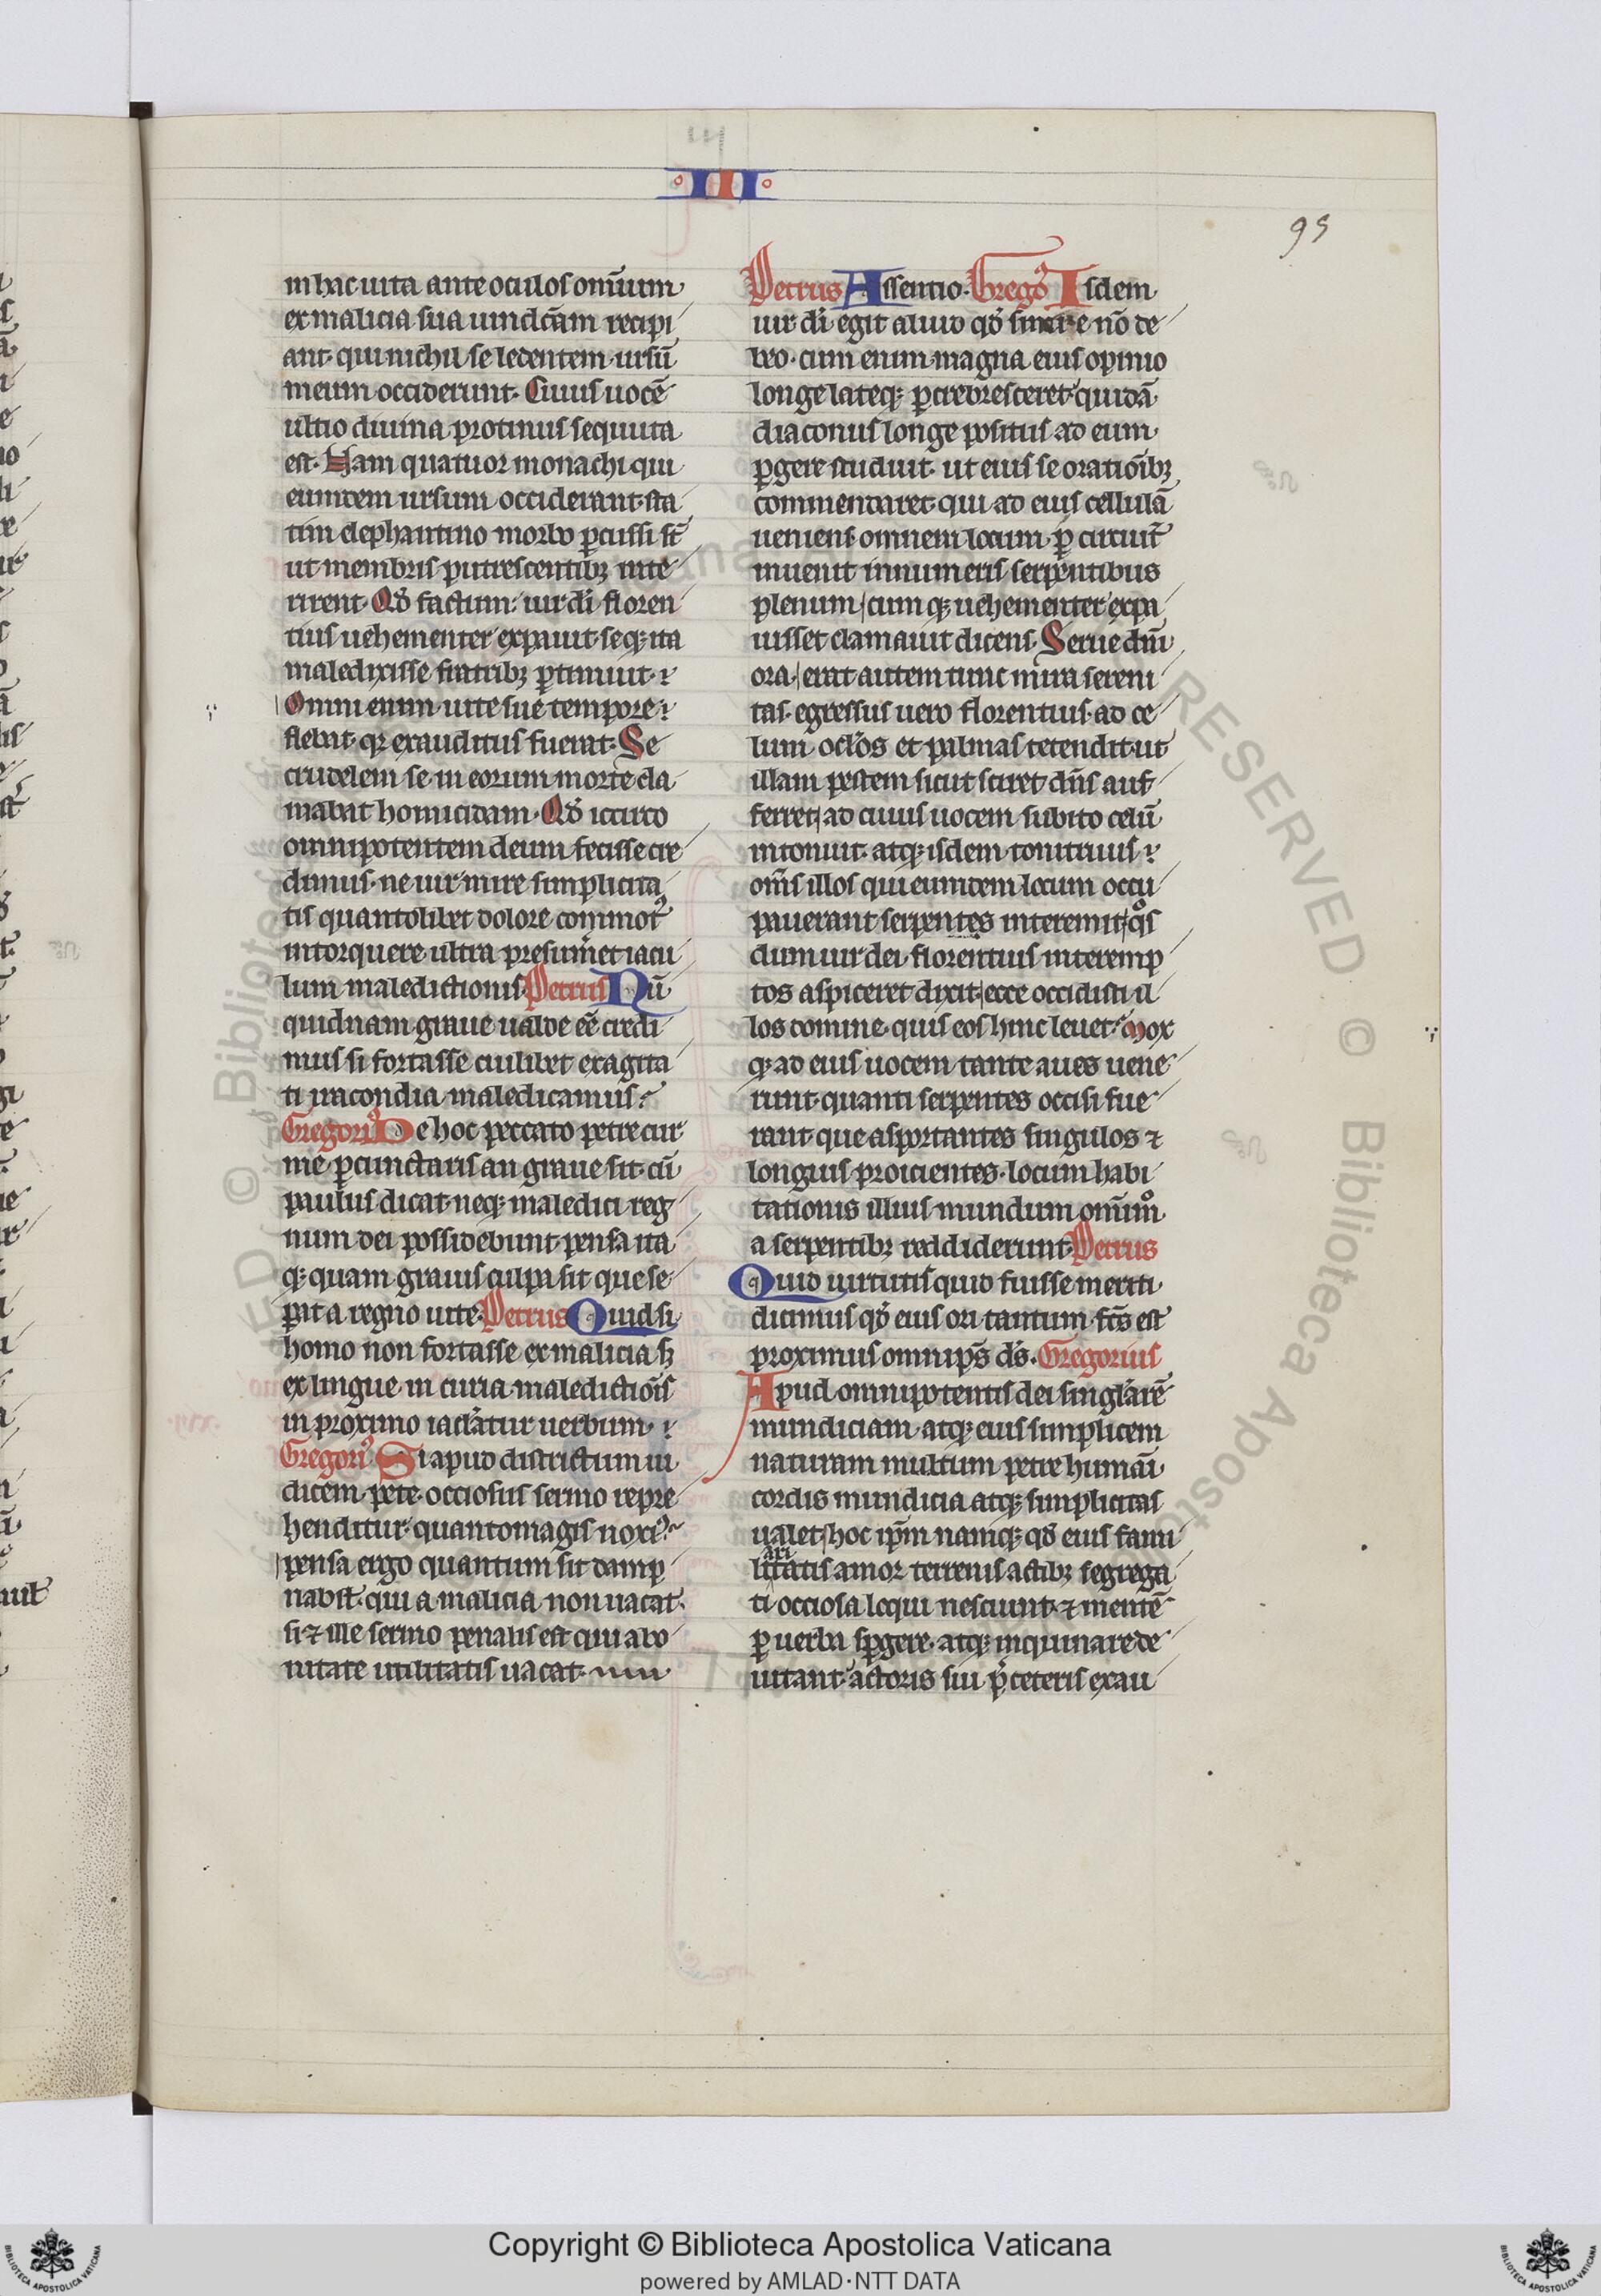 ·III·
95
in hac uita ante oculos om̅ium
ex malicia sua uindc̅am recipi
ant· qui nichil se ledentem ursu̅
meum occiderunt· Cuius uoce̅
ultio diuina protinus sequuta
est· Nam quatuor monachi qui
eumdem ursum occiderant sta
tim elephantino morbo ꝑcussi st̅
ut membris putrescentibꝫ inte
rirent· Qd̅ factum uir di̅ floren
tius uehementer expauit seqꝫ ita
maledixisse fratribꝫ ꝑtimuit·
Omni enim uite sue tempore
flebat qꝛ exauditus fuerat· Se
crudelem se in eorum morte cla
mabat homicidam· Qd̅ iccirco
omnipotentem deum fecisse cre
dimus· ne uir mire simplicita
tis quantolibet dolore commotꝰ
intorquere ultra presum̅et iacu
lum maledictionis· Petrus Nu̅
quidnam graue ualde ee̅ credi
mus si fortasse cuilibet exagita
ti iracondia maledicamus
Gregoriꝰ De hoc peccato petre cur
me ꝑcunctaris an graue sit· cu̅
paulus dicat neqꝫ maledici reg
num dei possidebunt pensa ita
qꝫ quam grauis culpa sit que se
ꝑat a regno uite· Petrus Quid si
homo non fortasse ex malicia sꝫ
ex lingue in curia maledictio̅is
in proximo iaclatur uerbum·
Gregoriꝰ Si apud districtum iu
dicem petre occiosus sermo repre
henditur quantomagis noxiꝰ
pensa ergo quantum sit damp
nabi̅t· qui a malicia non uacat·
si ⁊ ille sermo penalis est qui a bo
nitate utilitatis uacat·
Petrus Assentio· Gregoꝰ Isdem
uir di̅ egit aliud qd̅ sinere no̅ de
beo· cum enim magna eius opinio
longe lateqꝫ ꝑcrebresceret quida̅
diaconus longe positus ad eum
ꝑgere studuit· ut eius se oratio̅ibꝫ
commendaret· qui ad eius cellula̅
ueniens omnem locum ꝑ circuit̅
inuenit innumeris serpentibus
plenum cum qꝫ uehementer expa
uisset clamauit dicens· Serue dn̅i
ora· erat autem tunc mira sereni
tas· egressus uero florentius ad ce
lum ocl̅os et palmas tetendit ut
illam pestem sicut sciret dn̅s auf
ferret ad cuius uocem subito celu̅
intonuit· atqꝫ isdem tonitruus
om̅s illos qui eumdem locum occu
pauerant serpentes interemit qͦs
dum uir dei florentius interemp
tos aspiceret dixit ecce occidisti il
los domine· quis eos hinc leuet· Mox
qꝫ ad eius uocem tante aues uene
runt quanti serpentes occisi fue
rant que asportantes singulos ⁊
longius proicientes· locum habi
tationis illius mundum om̅imͦ
a serpentibꝫ reddiderunt· Petrus
Quid uirtutis quid fuisse meriti
dicimus qd̅ eius ori tantum fc̅s est
proximus omnip̅s d̅s· Gregorius
Apud omnipotentis dei singl̅are̅
mundiciam· atqꝫ eius simplicem
naturam multum petre huma̅i
cordis mundicia atqꝫ simplicitas
ualet hoc ip̅m namqꝫ qd̅ eius fami
ari
litatis amor terrenis actibꝫ segrega
ti occiosa loqui nesciunt· ⁊ mente̅
ꝑ uerba sꝑgere· atqꝫ inquinare de
uitant actoris sui p̅ ceteris exau
Copyright © Biblioteca Apostolica Vaticana
powered by AMLAD·NTT DATA